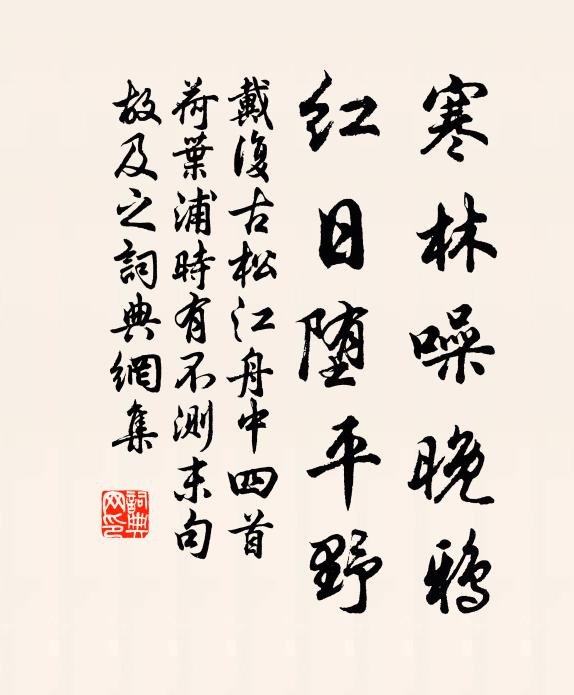 寒林噪晚鴉
紅日堕平野
戴復古松江舟中四首
荷葉浦時有不測末句
故及之詞典網集
詞典网印